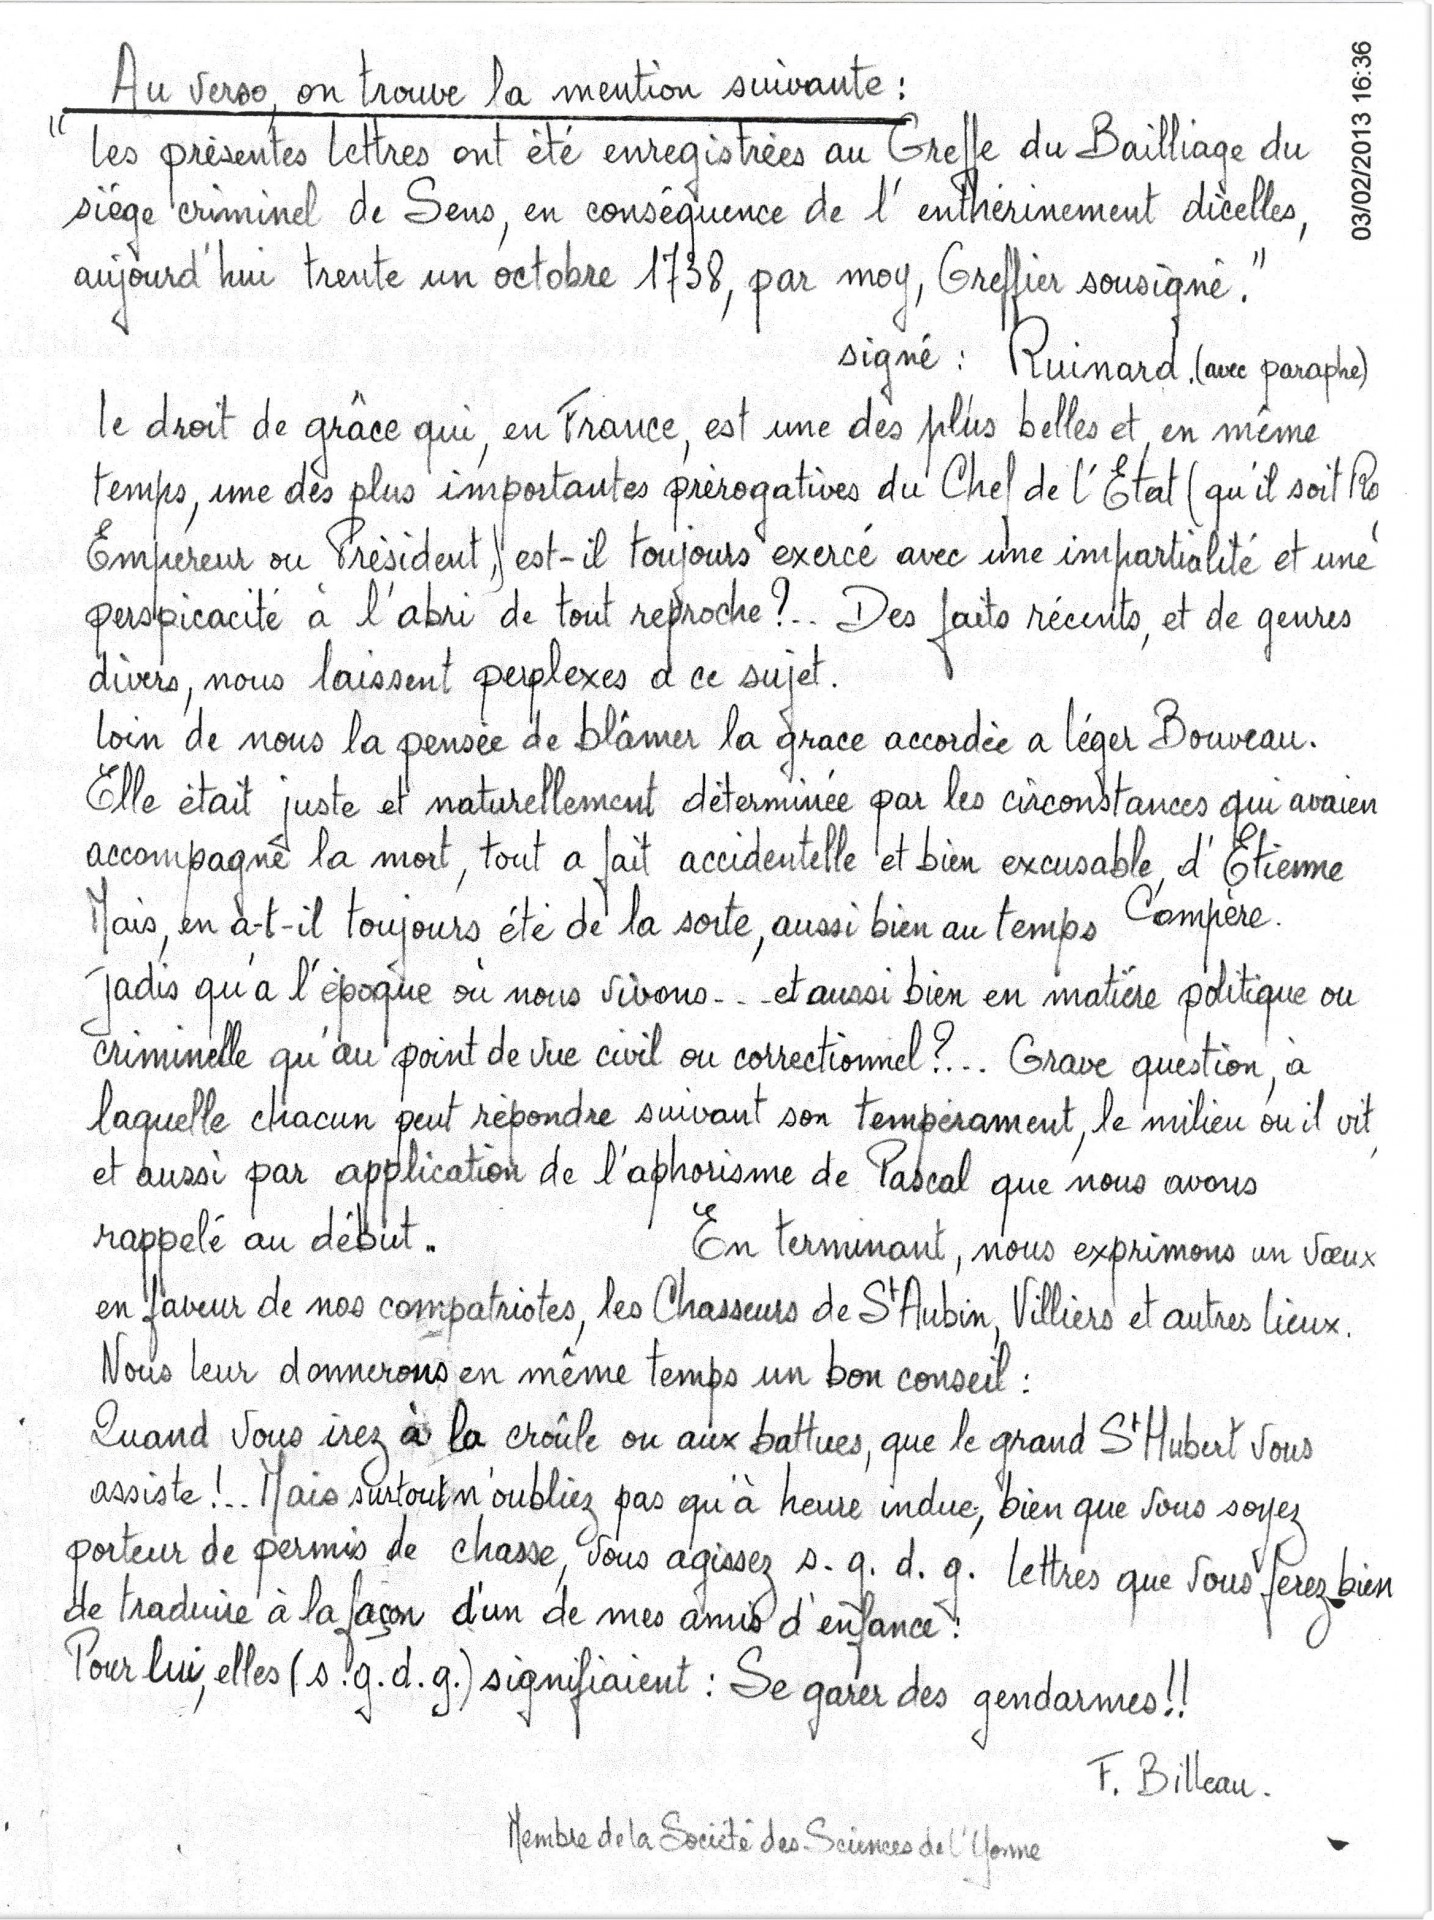 Au verso, on trouve la mention suivante :
" les présentes lettres ont été enregistrées au Greffe du Bailliage du
siége criminel de Sens, en conséquence de l' enthérinement dicelles,
aujourd'hui trente un octobre 1738, par moy, Greffier sousigné."
signé : Ruinard. (avec paraphe)
le droit de grâce qui, en France, est une des plus belles et, en même
temps, une des plus importantes prérogatives du Chef de l'Etat (qu'il soit Ro
Empereur ou Président,) est-il toujours exercé avec une impartialité et une
perspicacité à l'abri de tout reproche ?.. Des faits récents, et de genres
divers, nous laissent perplexes a ce sujet.
loin de nous la pensée de blâmer la grace accordée a léger Bouveau.
Elle était juste et naturellement déterminée par les circonstances qui avaien
accompagné la mort, tout a fait accidentelle et bien excusable, d' Etienne
Compère.
Mais, en a-t-il toujours été de la sorte, aussi bien au temps
jadis qu'a l'époque où nous vivons - . . et aussi bien en matière politique ou
criminelle qu'au point de vue civil ou correctionnel ?... Grave question, à
laquelle chacun peut répondre suivant son tempérament, le milieu ou il vit,
et aussi par application de l'aphorisme de Pascal que nous avons
rappelé au début.. En terminant, nous exprimons un vœux
en faveur de nos compatriotes, les Chasseurs de St Aubin, Villiers et autres lieux.
Nous leur donnerons en même temps un bon conseil :
Quand vous irez à la croûle ou aux battues, que le grand St Hubert vous
assiste !.. Mais surtout n'oubliez pas qu'à heure indue, bien que vous soyez
porteur de permis de chasse, vous agissez s. g. d. g. lettres que vous ferez bien
de traduire à la façon d'un de mes amis d'enfance :
Pour lui, elles (s.g.d.g.) signifiaient : Se garer des gendarmes !!
F. Billeau.
Membre de la Société des Sciences de l'Yonne
03/02/2013 16:36